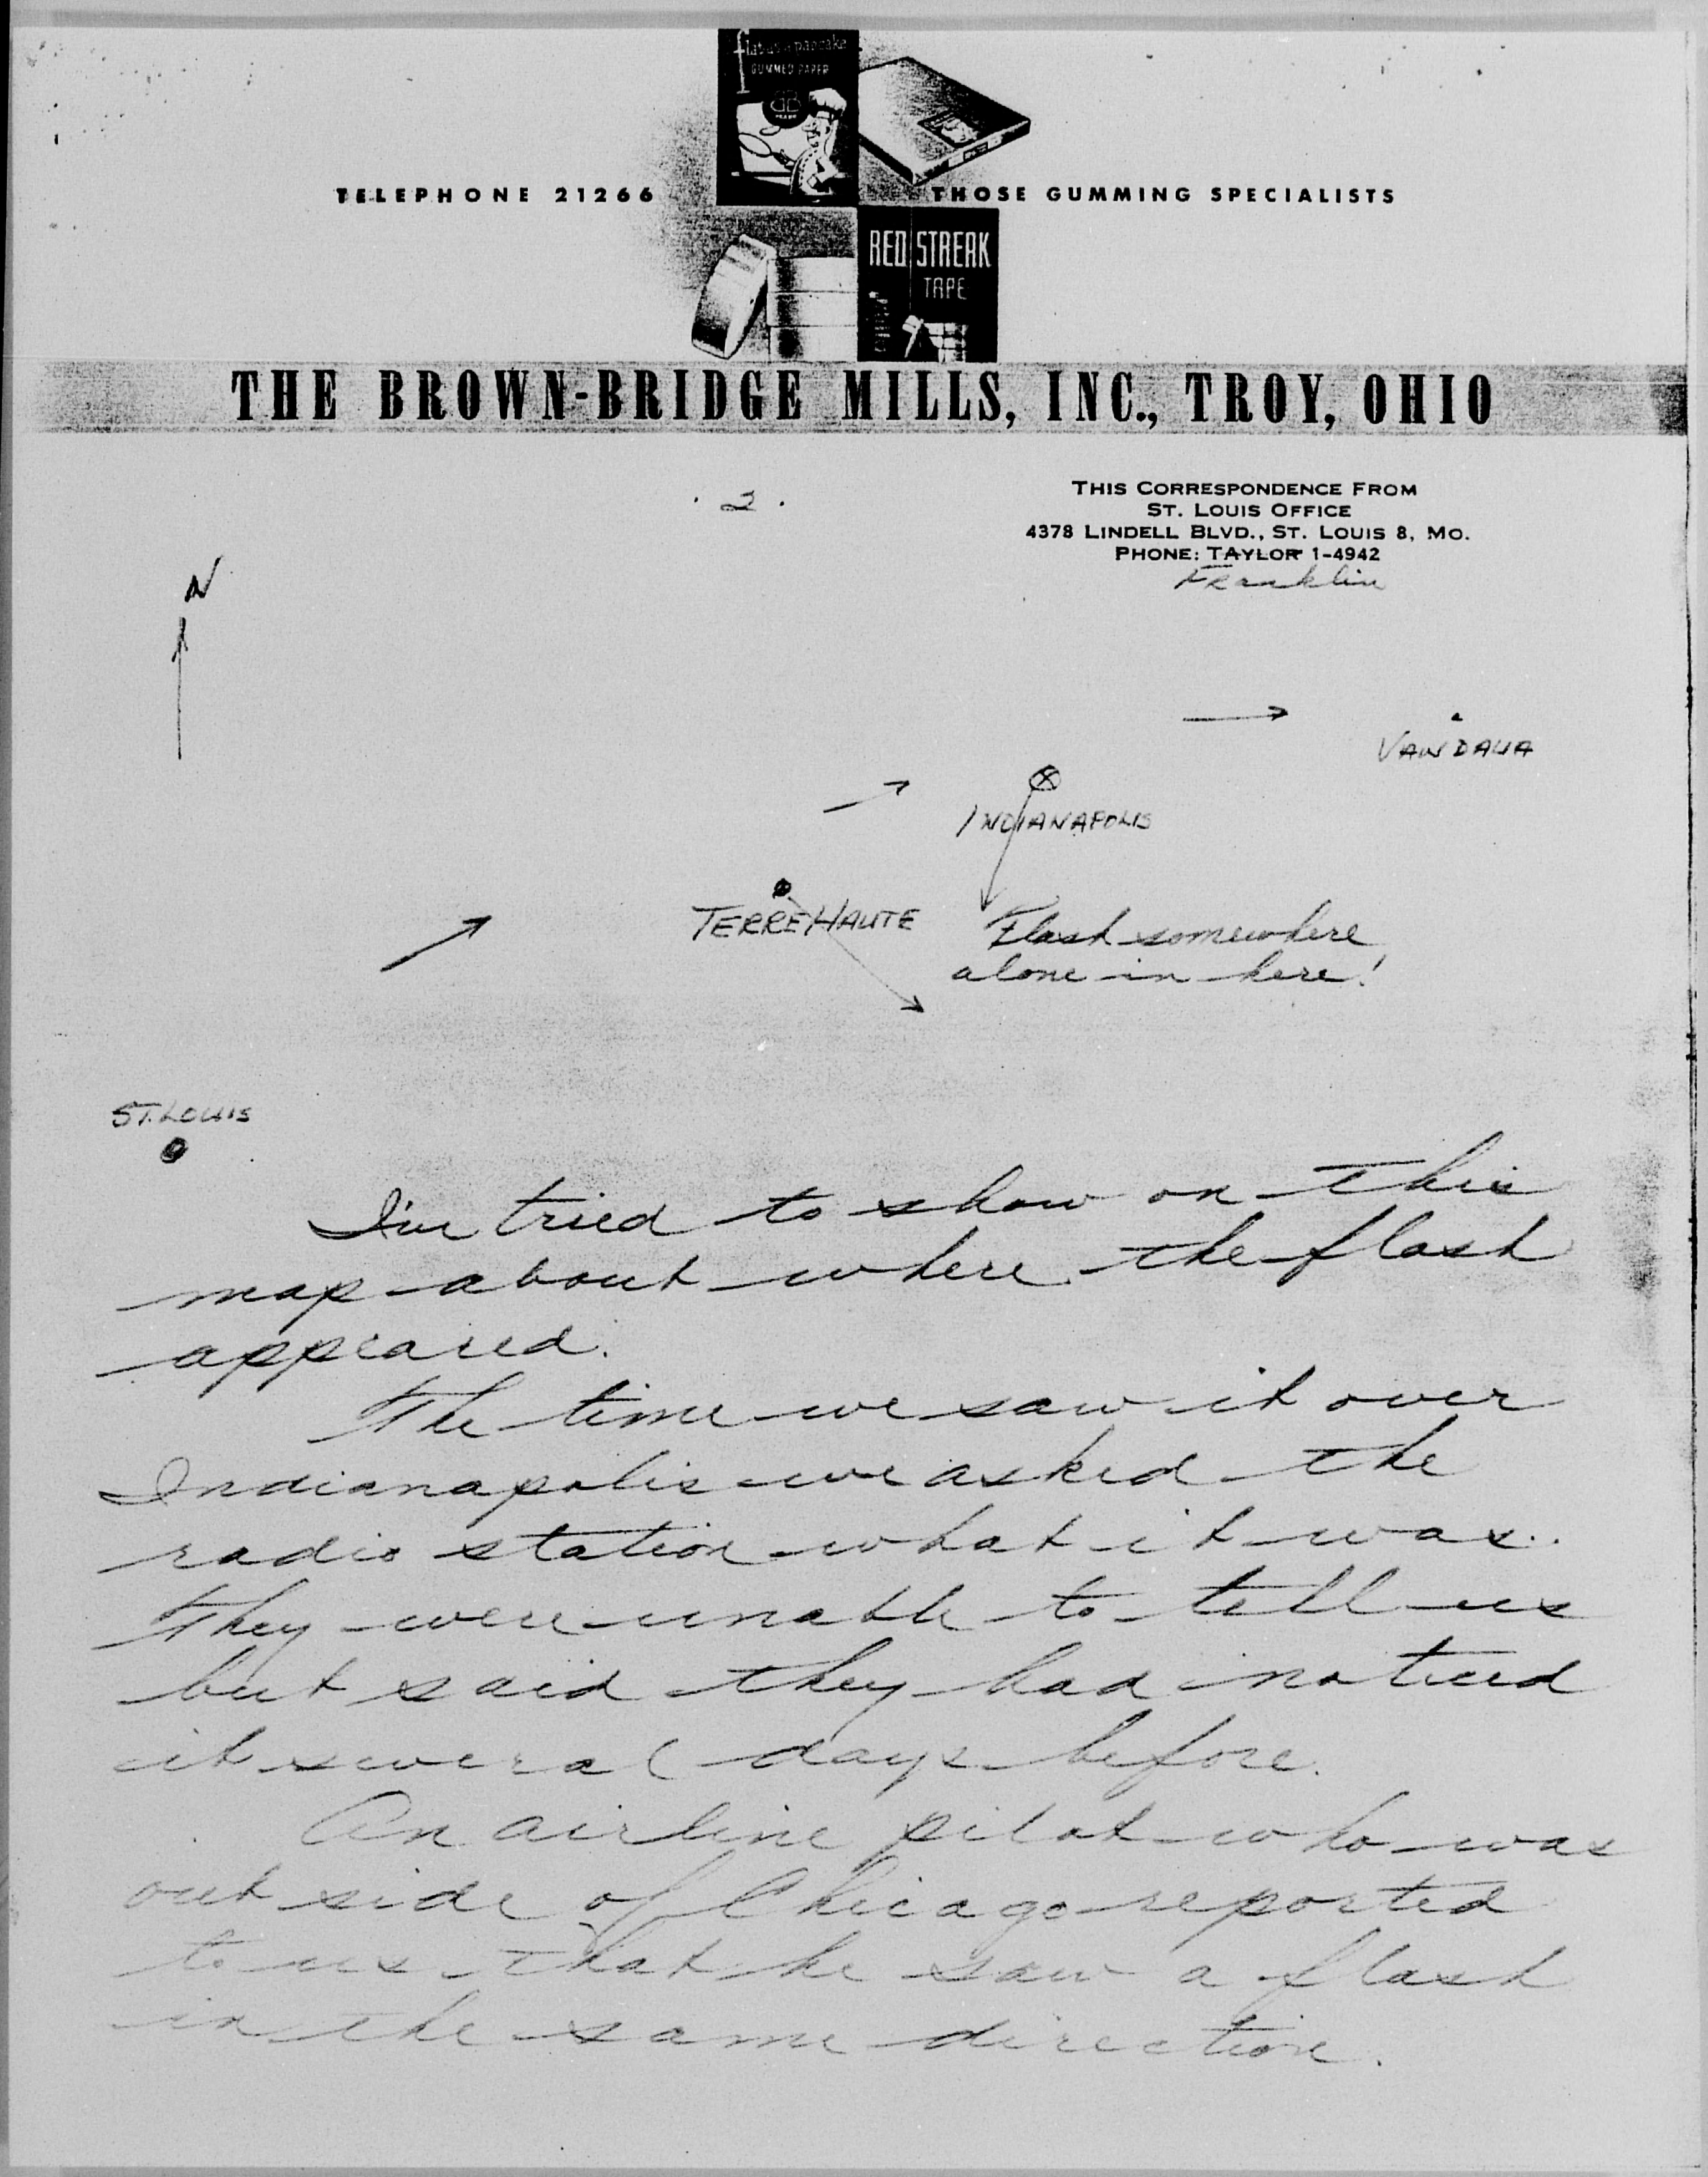 flat as a pancake
GUMMED PAPER
TELEPHONE 21266
THOSE GUMMING SPECIALISTS
RED STREAK
TAPE
THE BROWN-BRIDGE MILLS, INC., TROY, OHIO
. 2 .
THIS CORRESPONDENCE FROM
ST. LOUIS OFFICE
4378 LINDELL BLVD., ST. LOUIS 8, MO.
PHONE: TAYLOR 1-4942
Franklin
N
VANDALIA
INDIANAPOLIS
TERRE HAUTE
Flash somewhere
alone in here!
ST. LOUIS
I've tried to show on this
map about where the flash
appeared.
The time we saw it over
Indianapolis we asked the
radio station what it was.
They were unable to tell us
but said they had noticed
it several days before.
An airline pilot who was
out side of Chicago reported
to us that he saw a flash
in the same direction.